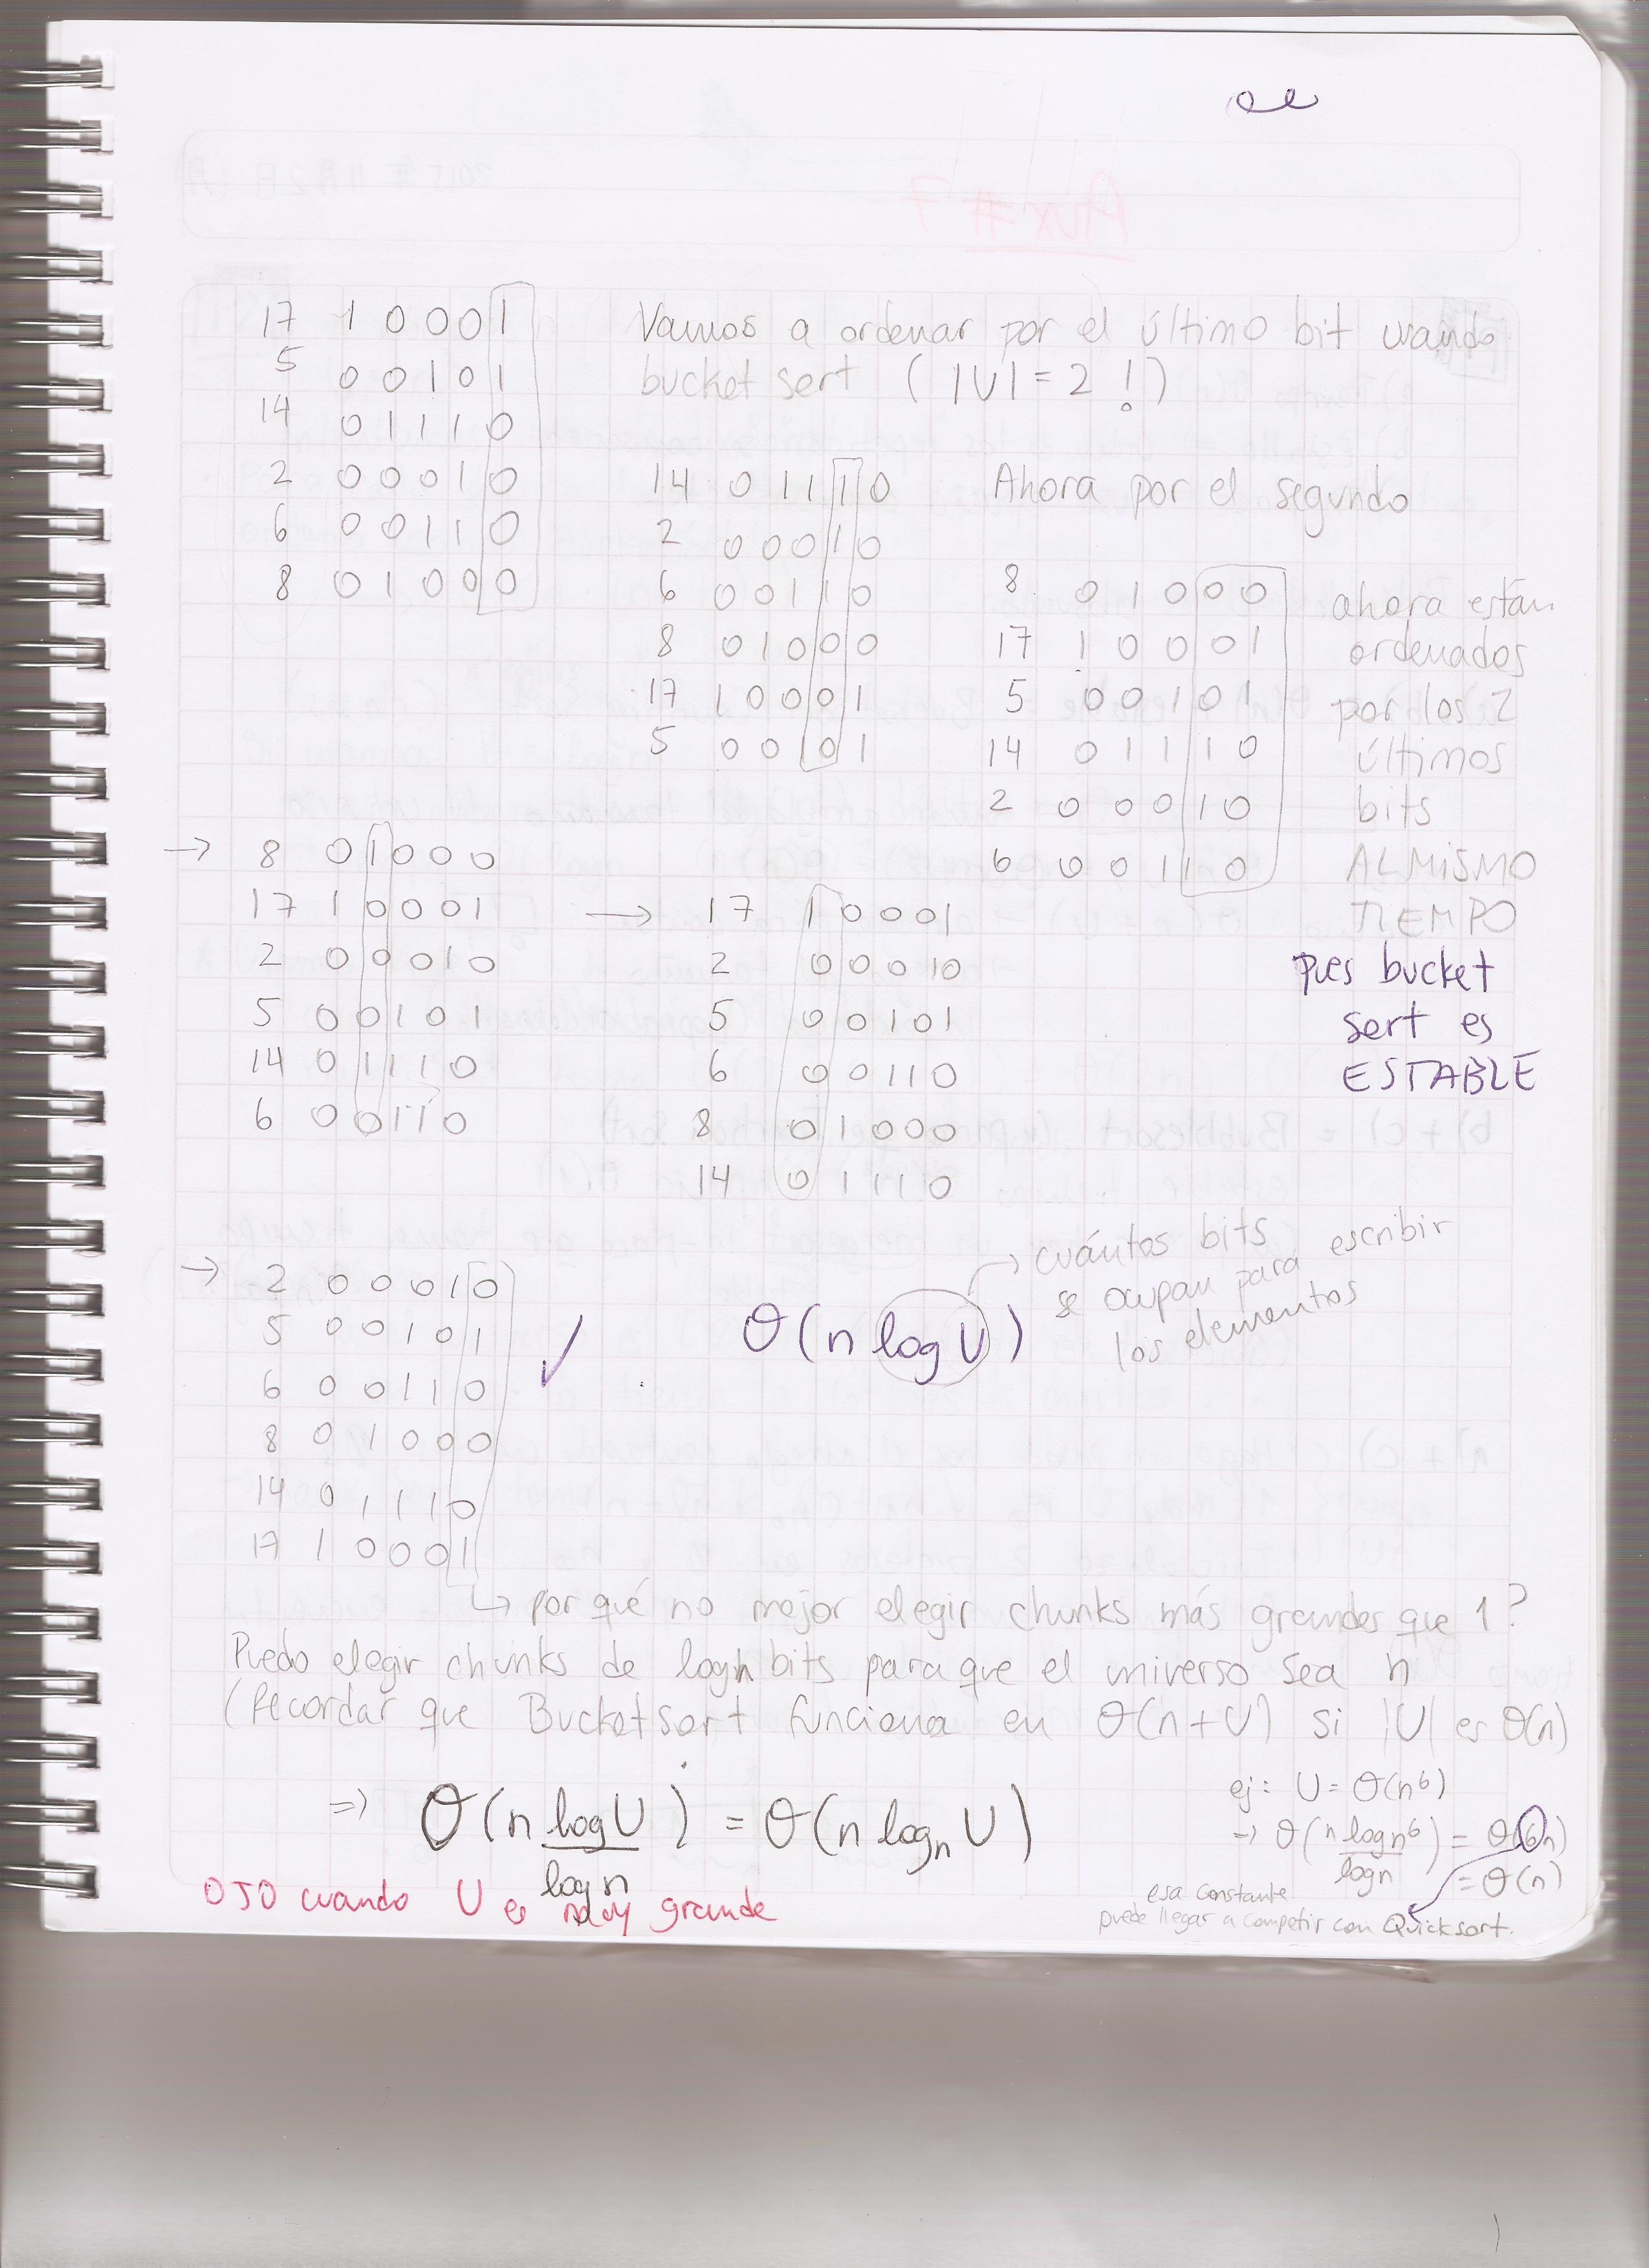 17 1 0 0 0 1
5 0 0 1 0 1
14 0 1 1 1 0
2 0 0 0 1 0
6 0 0 1 1 0
8 0 1 0 0 0
Vamos a ordenar por el último bit usando
bucket sort ( |U| = 2 ! )
14 0 1 1 1 0
2 0 0 0 1 0
6 0 0 1 1 0
8 0 1 0 0 0
17 1 0 0 0 1
5 0 0 1 0 1
Ahora por el segundo
8 0 1 0 0 0
17 1 0 0 0 1
5 0 0 1 0 1
14 0 1 1 1 0
2 0 0 0 1 0
6 0 0 1 1 0
ahora están
ordenados
por los 2
últimos
bits
AL MISMO
TIEMPO
pues bucket
sort es
ESTABLE
→ 8 0 1 0 0 0
17 1 0 0 0 1
2 0 0 0 1 0
5 0 0 1 0 1
14 0 1 1 1 0
6 0 0 1 1 0
→ 17 1 0 0 0 1
2 0 0 0 1 0
5 0 0 1 0 1
6 0 0 1 1 0
8 0 1 0 0 0
14 0 1 1 1 0
→ 2 0 0 0 1 0
5 0 0 1 0 1
6 0 0 1 1 0
8 0 1 0 0 0
14 0 1 1 1 0
17 1 0 0 0 1
✓
θ(n log U)
→ cuántos bits
se ocupan para escribir
los elementos
↳ por qué no mejor elegir chunks más grandes que 1?
Puedo elegir chunks de logn bits para que el universo sea n
(Recordar que Bucketsort funciona en θ(n+U) si |U| es θ(n)
⇒ θ(n log U / log n) = θ(n logₙ U)
OJO cuando U es muy grande
ej: U = θ(n⁶)
→ θ(n log n⁶ / log n) = θ(6n)
= θ(n)
esa constante
puede llegar a competir con Quicksort.